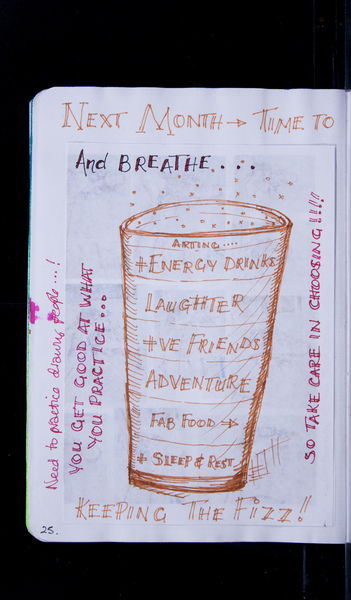 NEXT MONTH → TIME TO
And BREATHE...
ARTING....
+ENERGY DRINKS
LAUGHTER
+VE FRIENDS
ADVENTURE
FAB FOOD →
+ SLEEP & REST
KEEPING THE FIZZ!!
Need to practice drawing people...!
YOU GET GOOD AT WHAT
YOU PRACTICE...
SO TAKE CARE IN CHOOSING!!!!
25.